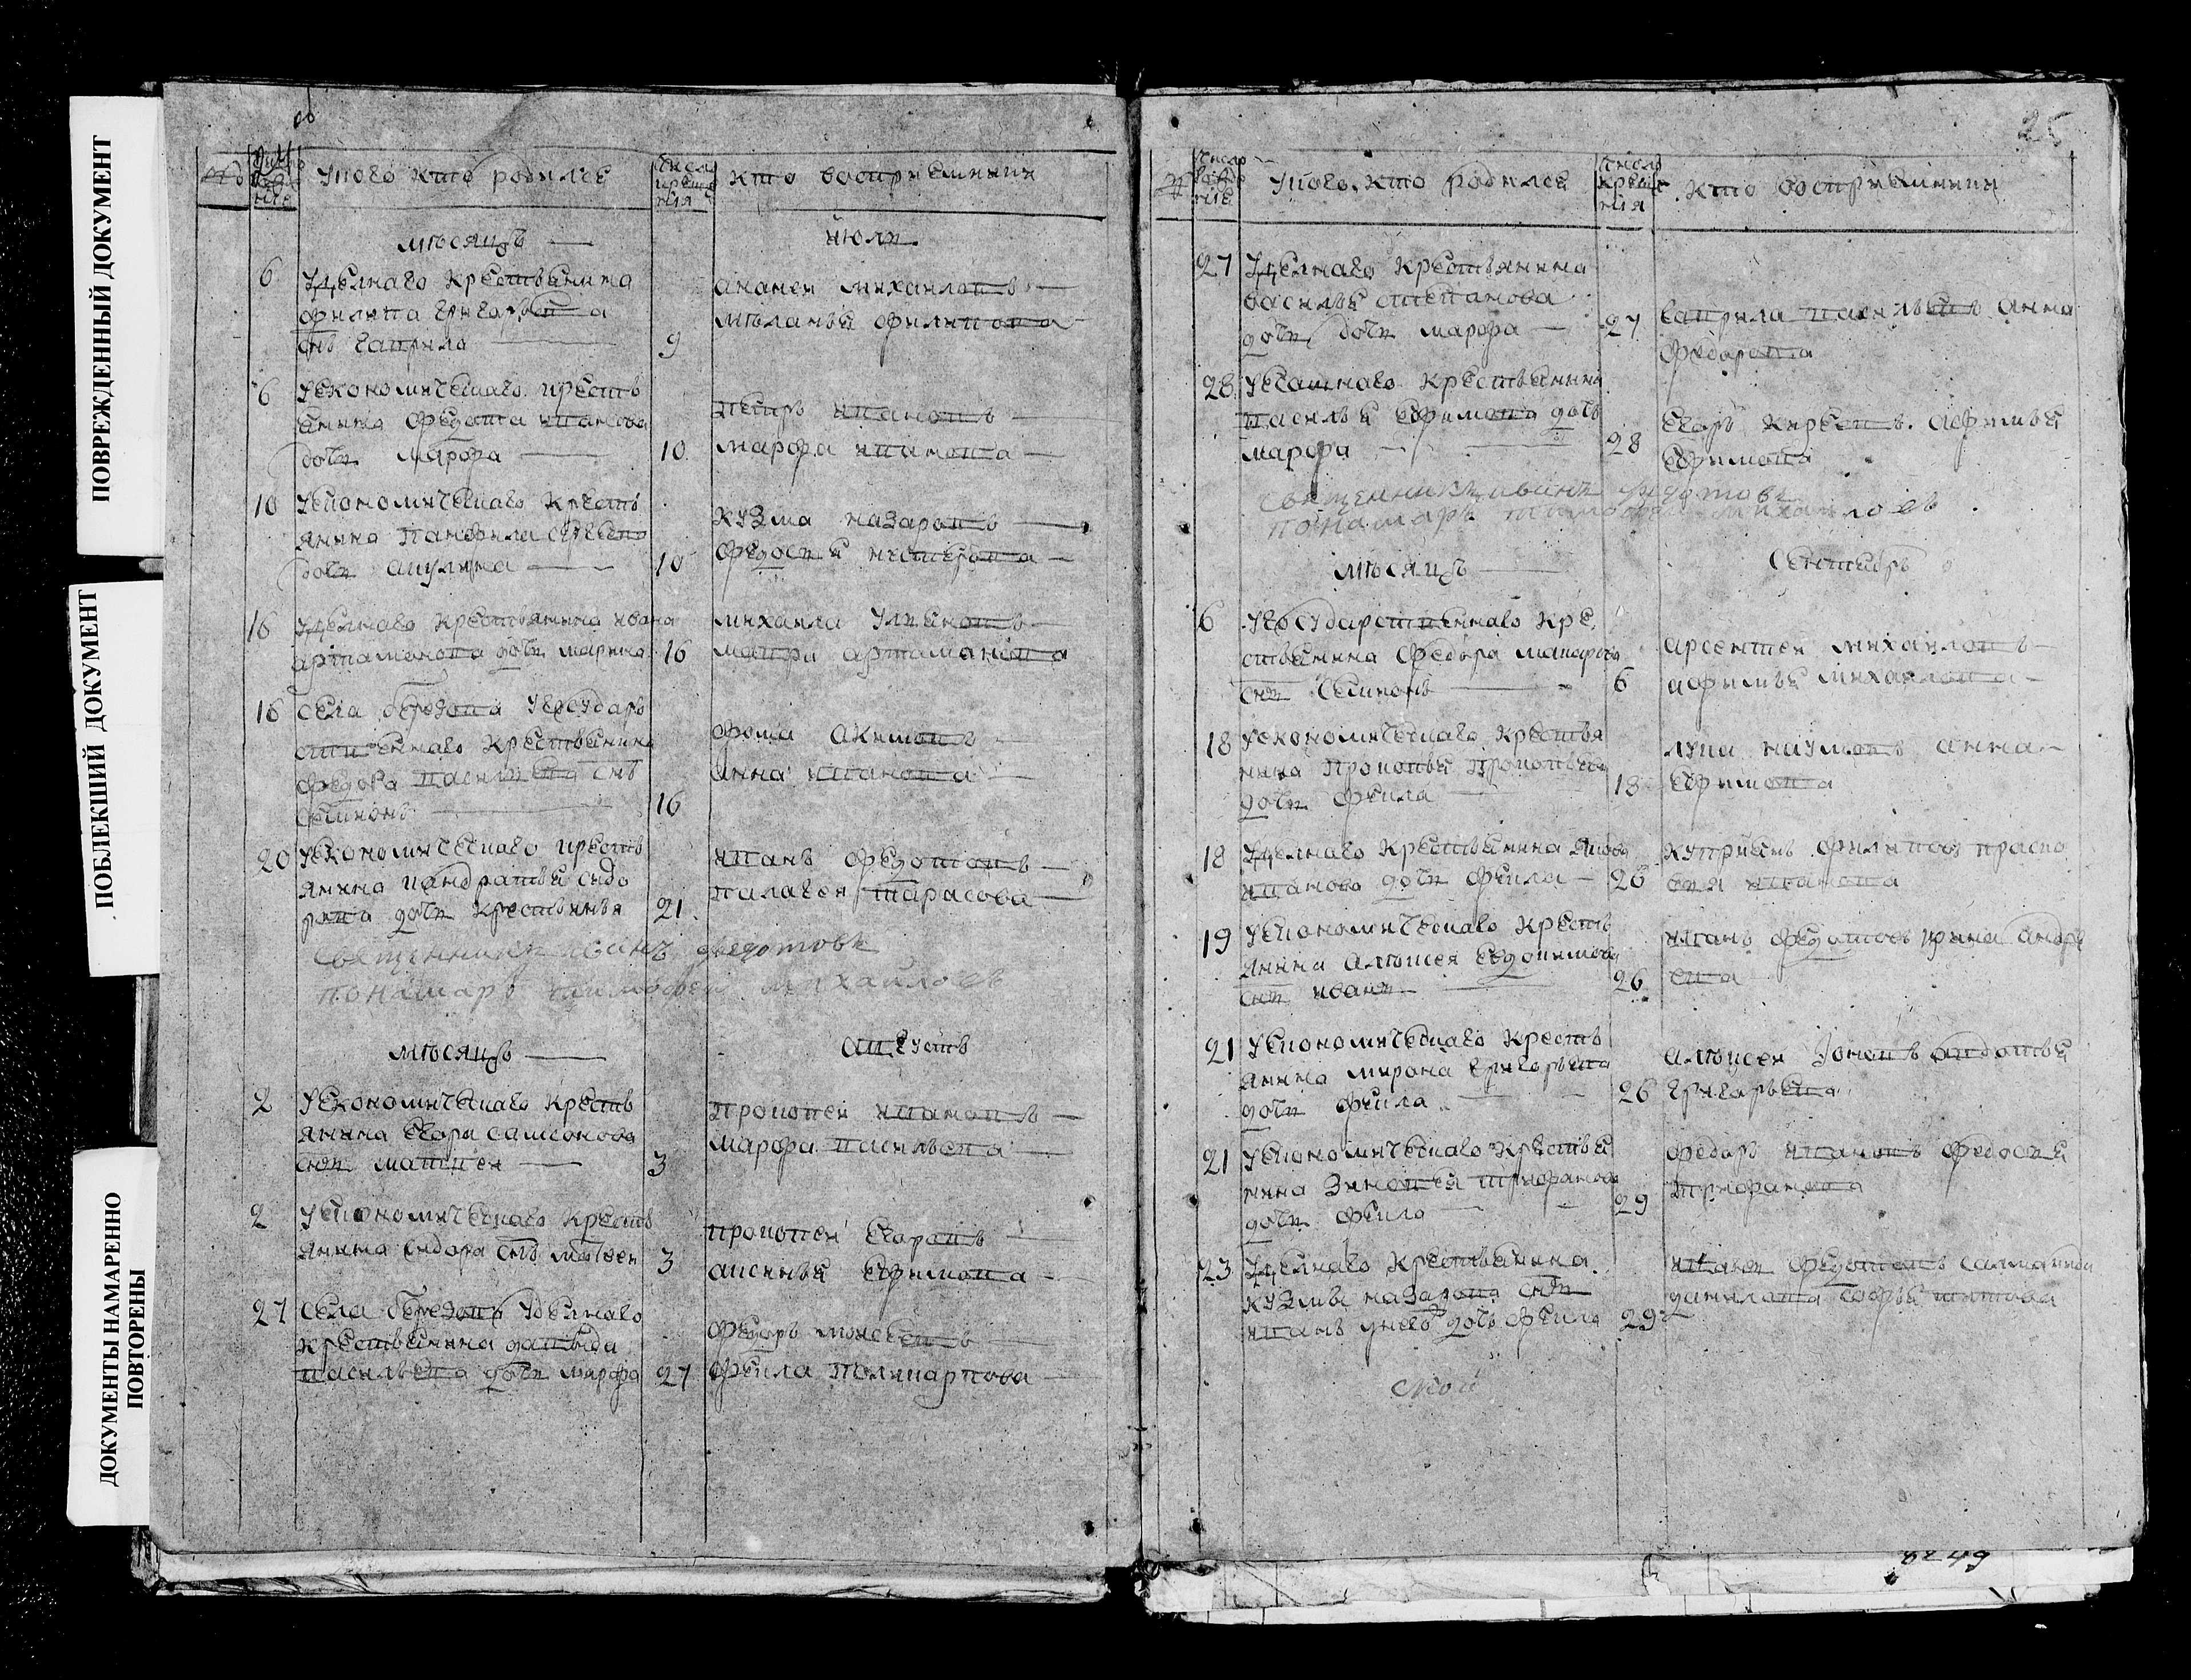 ПОВРЕЖДЕННЫЙ ДОКУМЕНТ
ПОБЛЕКШИЙ ДОКУМЕНТ
ДОКУМЕНТЫ НАМАРЕННО
ПОВТОРЕНЫ
У кого кто родился
Число
крещения
кто восприемники
мѣсяцъ
июли
6
Удѣлнаго крестьянина
филипа григорьева
снъ гаврила
9
ананеи михаиловъ
мѣланья филипова
6
У економическаго кресть
янина федота иванова
дочь марфа
10
петръ ивановъ
марфа иванова
10
У економическаго кресть
янина панфила
дочь акулина
10
кузма назаровъ
федосья нестерова
16
Удѣлнаго крестьянина ивана
артамонова дочь марина
16
михаила
мавра артамонова
16
села березова У государь
ственнаго крестьянина
федора васильева снъ
семионъ
16
фома акимовъ
анна иванова
20
У економическаго кресть
янина кандратья сидо
рова дочь крестьинья
21
иванъ федотовъ
палагея тарасова
священникъ иванъ федотовъ
понамарь тимофеи михайловъ
мѣсяцъ
августъ
2
У економическаго кресть
янина егора самсонова
снъ матвеи
3
прокопеи ивановъ
марфа васильева
2
У економическаго кресть
янина сидора снъ матвеи
3
прокопеи егоровъ
аксинья ефимова
27
села березова удѣлнаго
крестьянина давыда
васильева дочь марфа
27
федоръ моисеевъ
фекла поликарпова
25
Число
рожде
ния
У кого кто родился
Число
креще
ния
кто восприемники
27
Удѣлнаго крестьянина
василья степанова
дочь марфа
27
гаврила васильевъ анна
федорова
28
У крестьянина
василья ефимова дочь
марфа
28
егоръ афимья
ефимова
священникъ иванъ федотовъ
понамарь тимофеи михайловъ
мѣсяцъ
сентябрь
6
У государственнаго кре
стьянина федора макарова
снъ семионъ
6
арсентеи михаиловъ
афимья михаилова
18
У економическаго крестья
нина прокопья прокопьева
дочь фекла
18
лука наумовъ анна
ефимова
18
Удѣлнаго крестьянина якова
иванова дочь фекла
26
куприянъ филиповъ праско
вья иванова
19
У економическаго кресть
янина алѣксея евдокимова
снъ иванъ
26
иванъ федотовъ ирина андре
ева
21
У економическаго кресть
янина мирона григорьева
дочь фекла
26
алѣксеи авдотья
григорьева
21
У економическаго крестья
нина зиновея трифанова
дочь фекла
29
федоръ ивановъ федосья
трифанова
23
Удѣлнаго крестьянина
кузмы назарова снъ
иванъ у него дочь фекла
29
иванъ федотовъ
данилова софья титова
8249